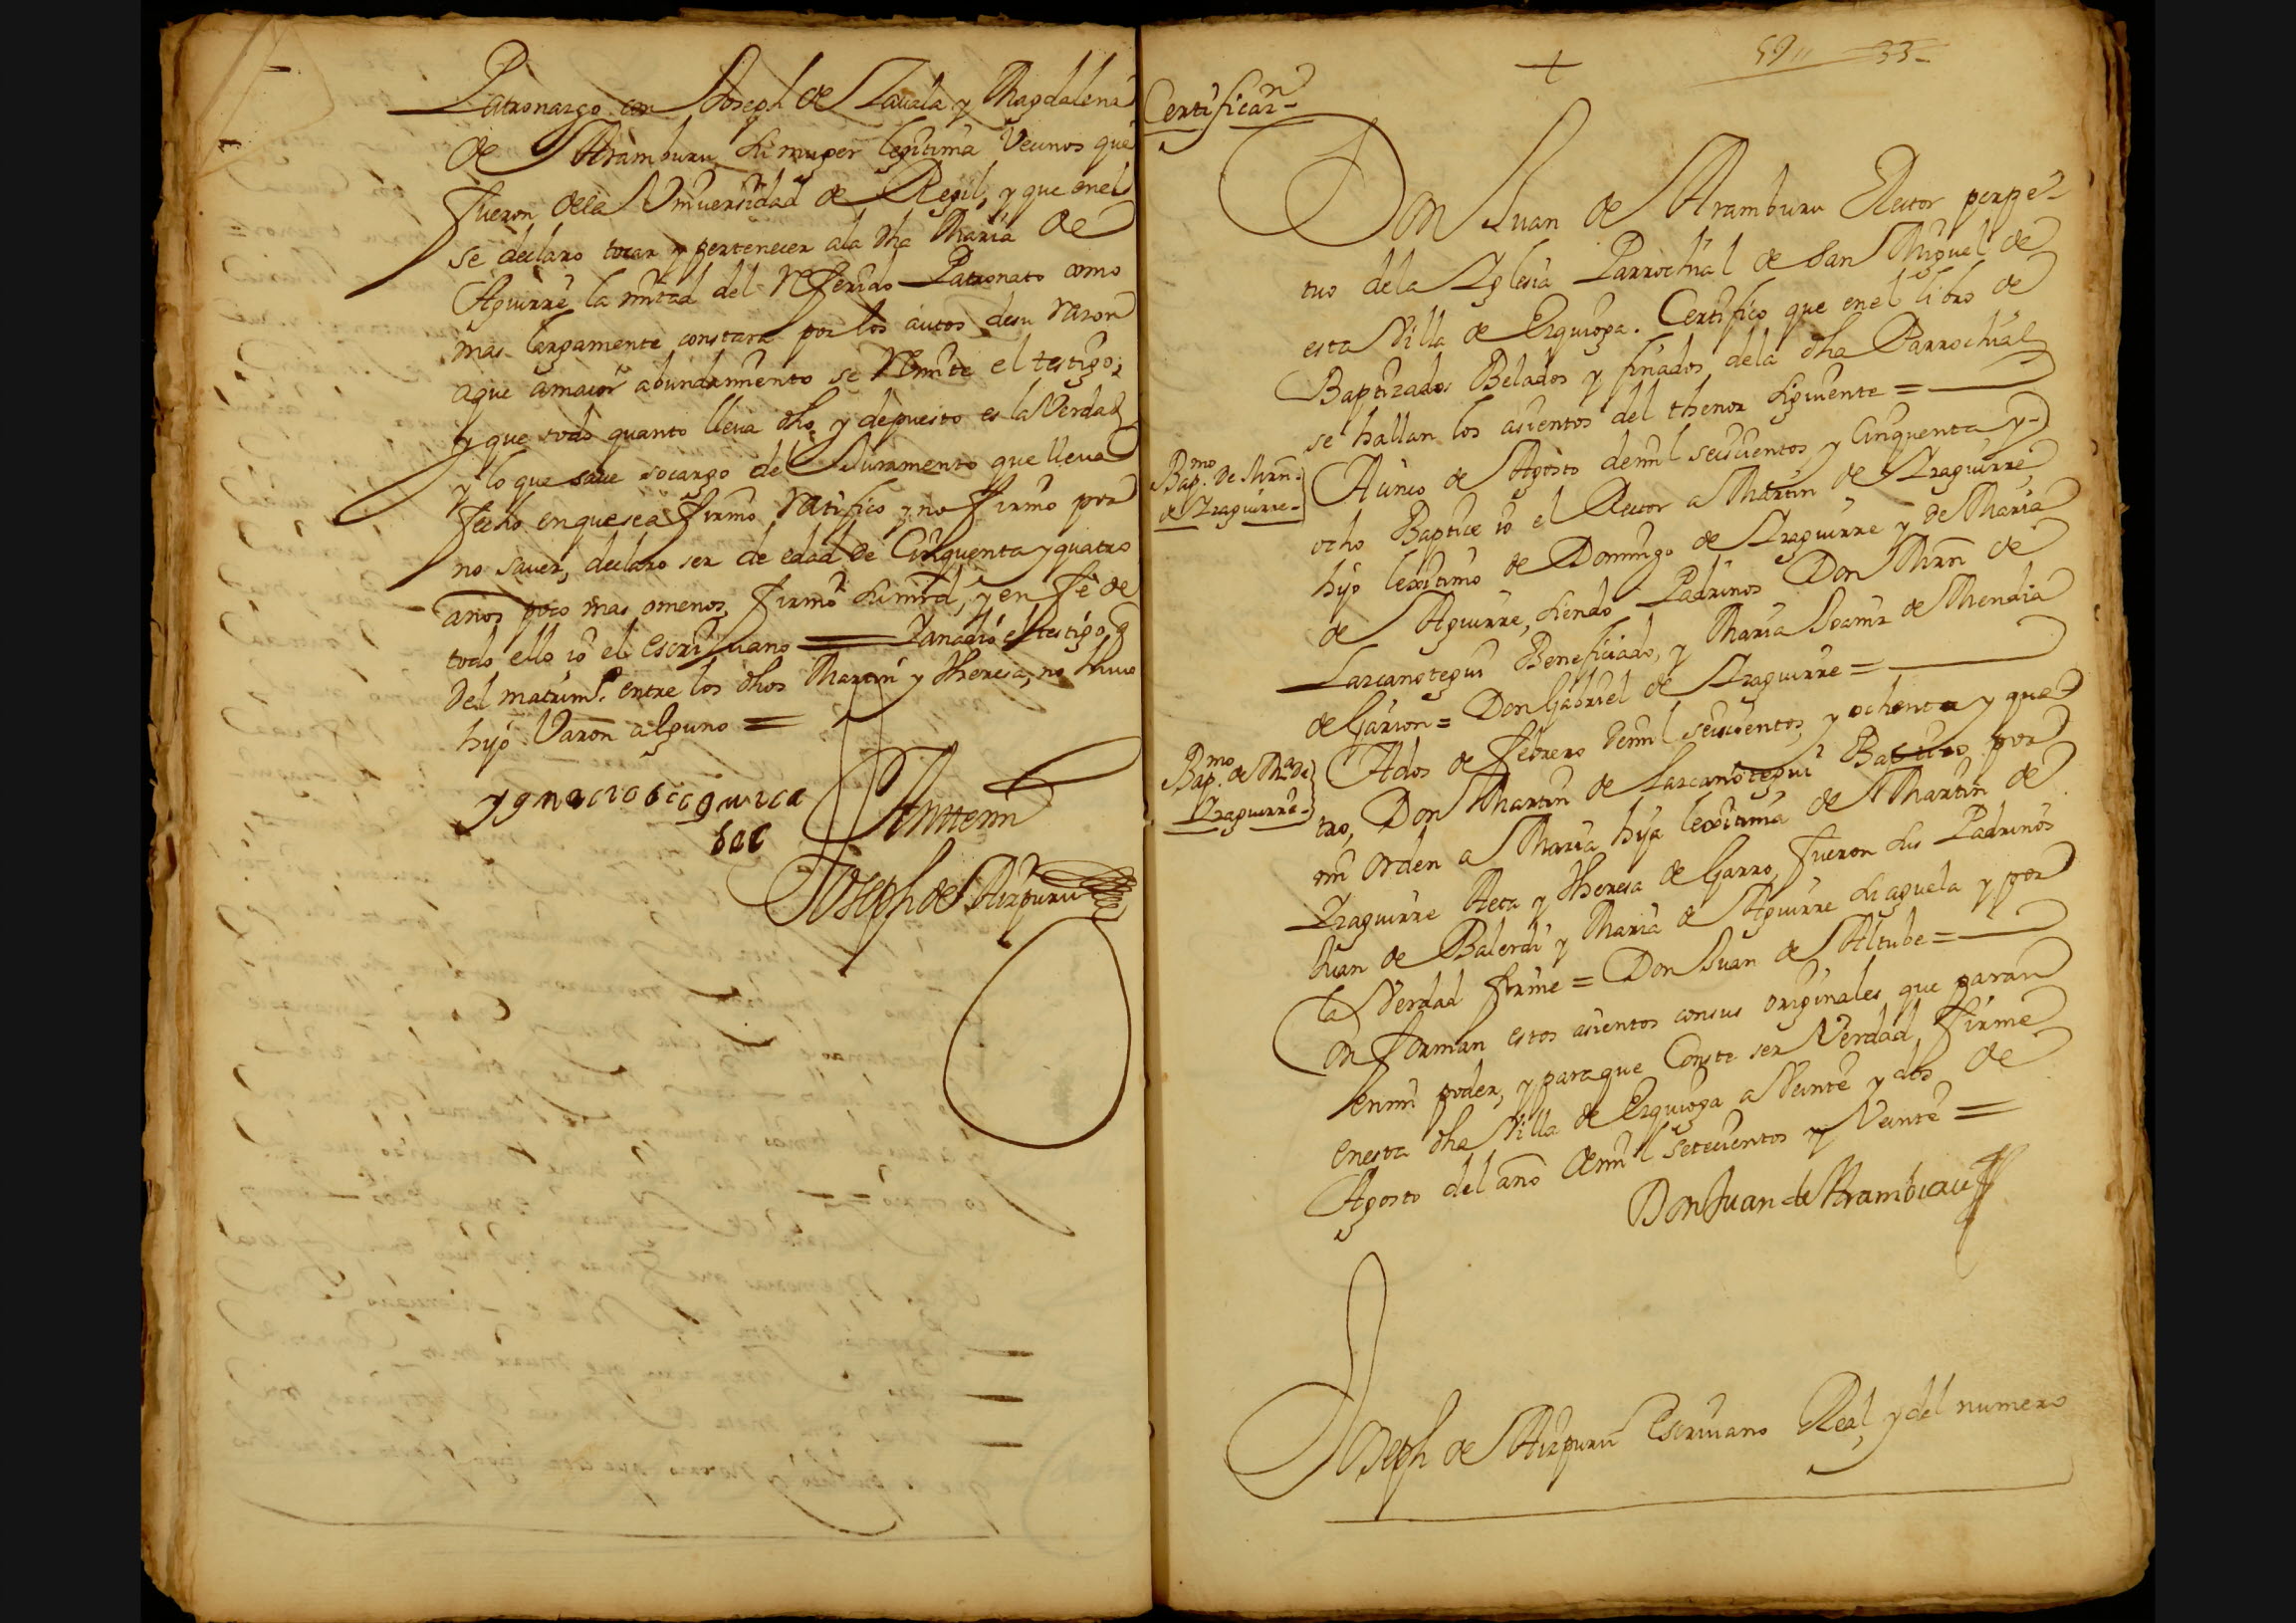 Patronazgo con Joseph de Zauala y Magdalena
de Aramburu su muger legitima Veçinos que
fueron dela Vniuersidad de Regil, y que enel
se declaro tocar y pertenecer ala dha Maria de
Aguirre la mitad del referido Patronato como
mas largamente constara por los autos desu razon
aque amaior abundamiento se remite el testigo;
y que todo quanto lleua dho, y depuesto es la Verdad
y lo que saue socargo del Juramento que lleua
fecho enquesea firmo ratifico y no firmo por
no sauer, declaro ser de edad de Cinquenta y quatro
años poco mas omenos, firmo su mrd, y en fe de
todo ello io el escriuano = Y anadio el testigo, q
Del matrim.º entre los dhos Martin y Theresa, no huuo
hijo Varon alguno =
Antte mi
Joseph de Aizpuru
59 33
Certificaz.n
Don Juan de Aramburu Rector perpe-
tuo dela Yglesia Parrochial de San Miguel de
esta Villa de Ezquioga. Certifico que enel libro de
Baptizados Belados y finados dela dha Parrochial
se hallan los asientos del thenor siguiente =
Bap.mo de Mrn.
de Yraguirre
A cinco de Agosto demil seiscientos y Cinquenta y
ocho Baptice io el Rector a Martin de Yraguirre,
hijo lexitimo de Domingo de Yraguirre y de Maria
de Aguirre, siendo Padrinos Don Mrn de
Lazcanotegui Beneficiado, y Maria Joamiz de Mendia
de Garion = Don Gabriel de Yraguirre =
Bap.mo de M.a de
Yraguirre
A dos de febrero demil seiscientos y ochenta y qua-
tro, Don Martin de Lazcanotegui Batizo por
mi orden a Maria hija lexitima de Martin de
Yraguirre Aeta y Theresa de Garro, fueron sus Padrinos
Juan de Balerdi y Maria de Aguirre su aguela y por
la Verdad firme = Don Juan de Altube =
Conforman estos asientos consus originales que paran
enmi poder, y paraque Conste ser Verdad firme
enesta dha Villa de Ezquioga a Veinte y dos de
Agosto del año demil Setecientos y Veinte =
Don Juan de Aramburu
Joseph de Aizpuru Escriuano Real, y del numero